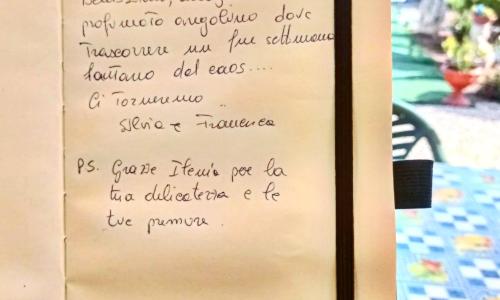 profumato angolino dove
trascorrere un fine settimana
lontano dal caos....
Ci torneremo ..
Silvia e Francesca
PS. Grazie Ilenia per la
tua delicatezza e le
tue premure.